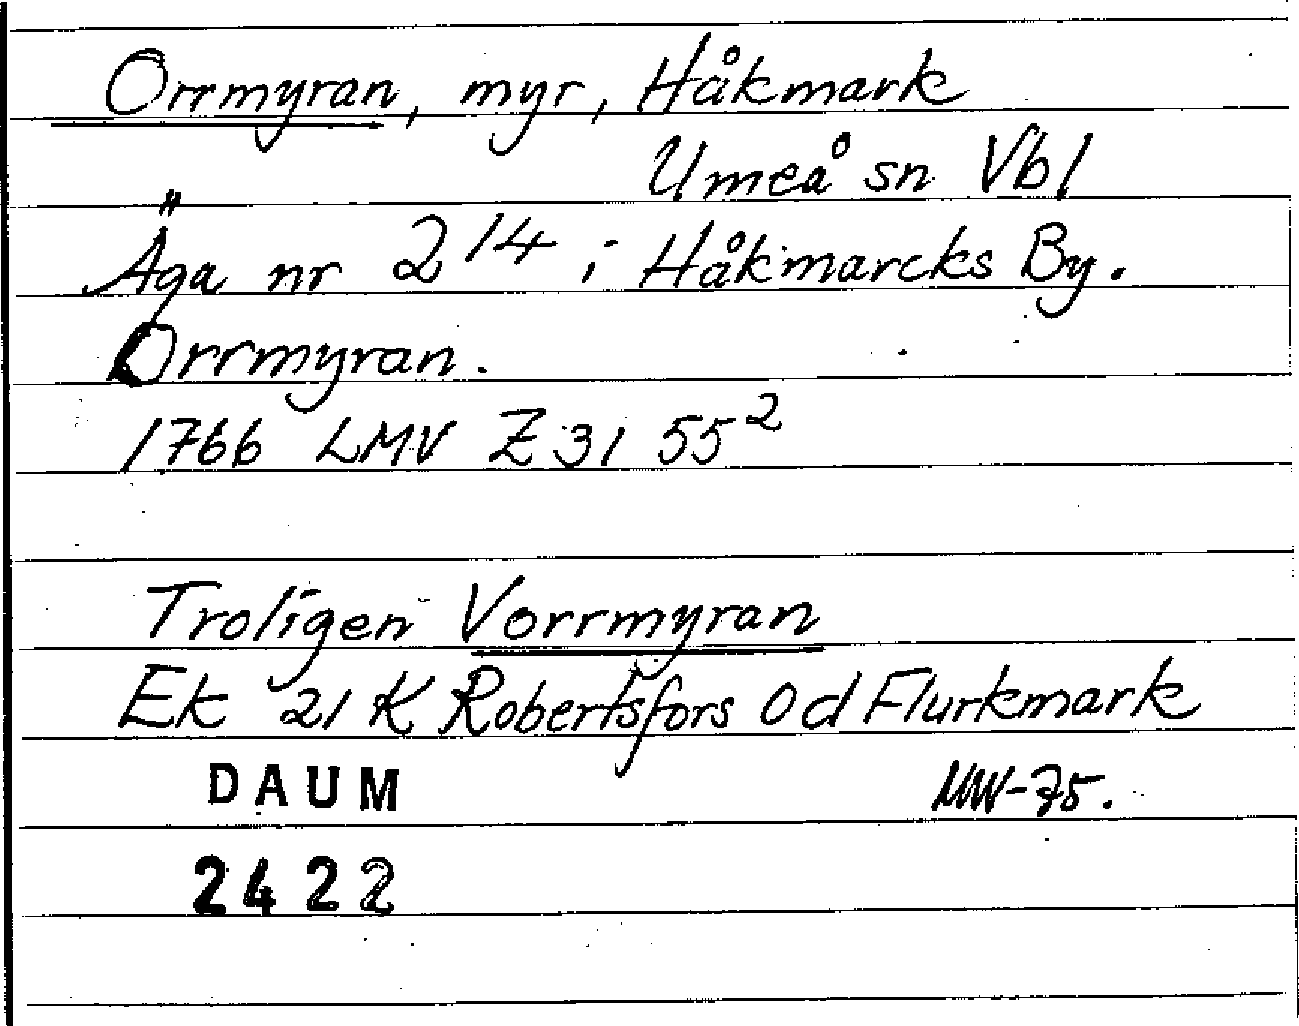 Orrmyran, myr, Håkmark
Umeå sn Vbl
Äga nr 2 14 i Håkmarcks By.
Orrmyran.
1766 LMV Z 31 55²
Troligen Vorrmyran
Ek 21 K Robertsfors 0d Flurkmark
DAUM MW-75.
2422